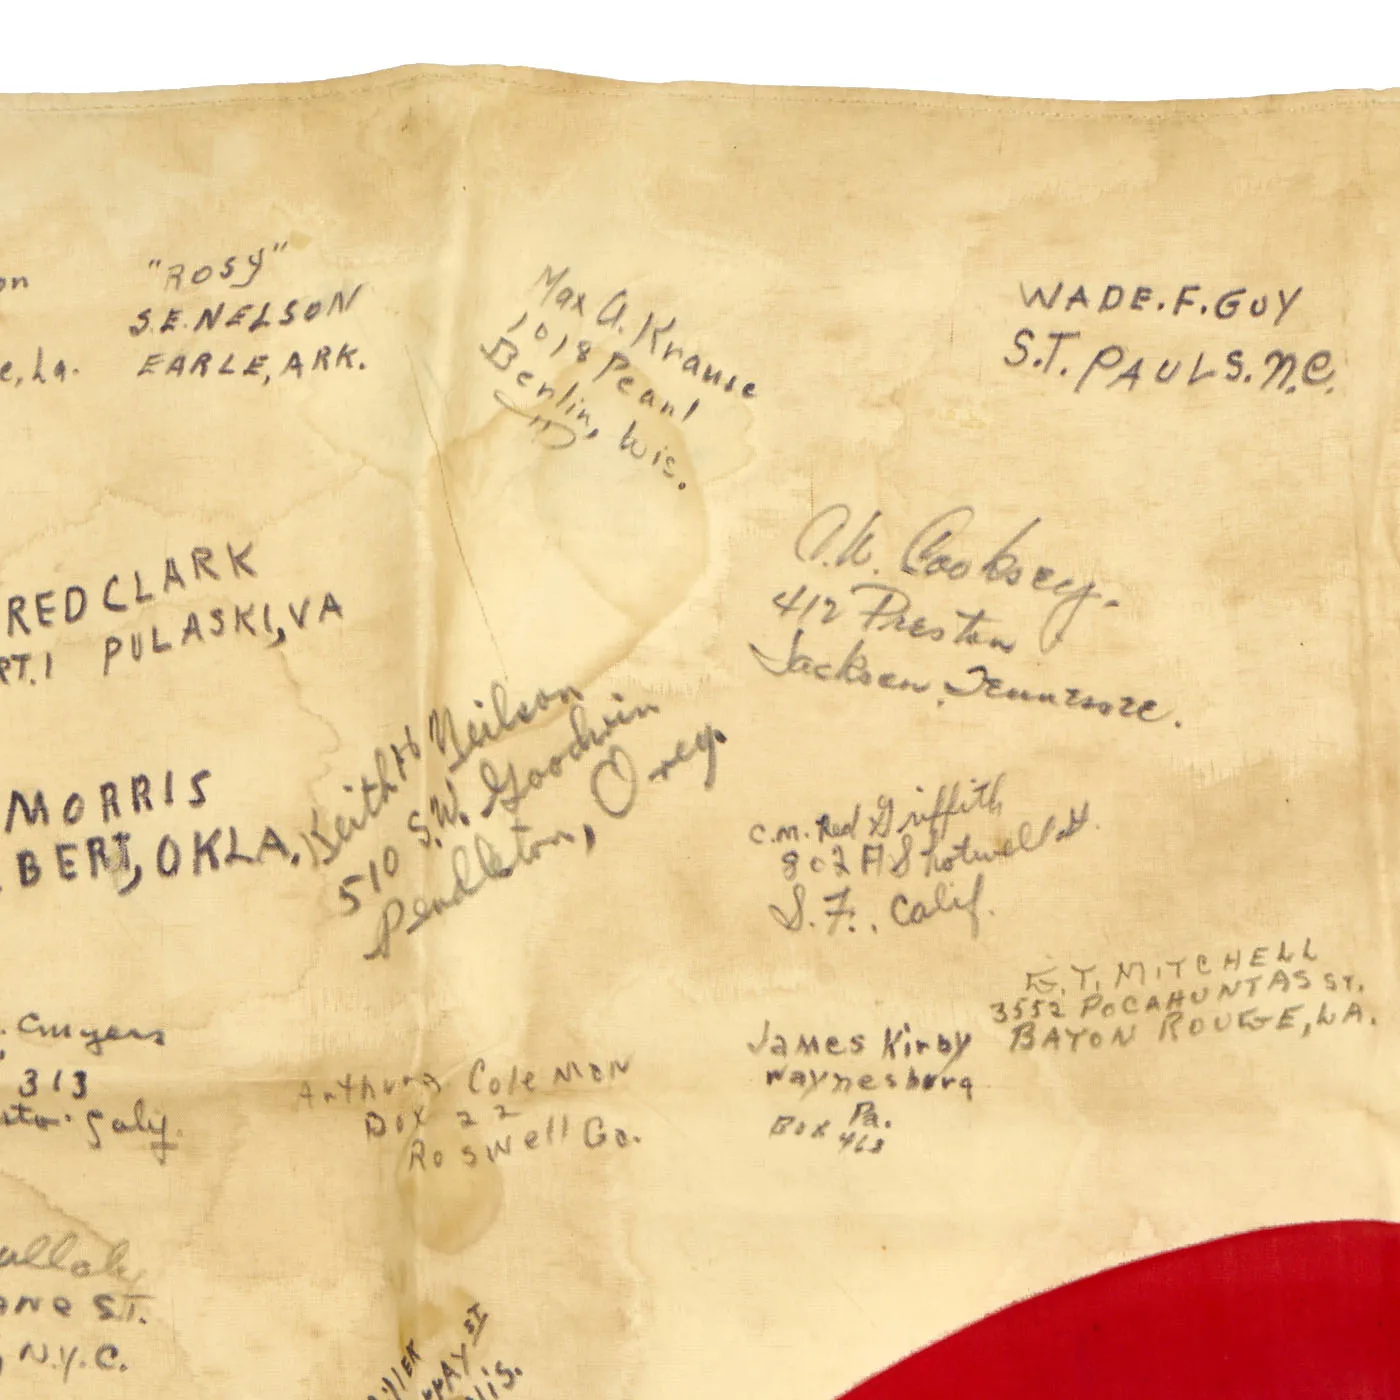 "ROSY"
S.E. NELSON
EARLE, ARK.
La.
Max A. Krause
1018 Pearl
Berlin, Wis.
WADE. F. GUY
S.T. PAULS. N.C.
RED CLARK
RT. 1 PULASKI, VA
Cooksey.
412 Preston
Jackson, Tennessee.
Keith H Neilson
510 S.W. Goodwin
Pendleton, Oreg.
MORRIS
BERT, OKLA.
C.M. Red Griffith
802 A Shotwell St.
S.F., Calif.
E.T. MITCHELL
3552 POCAHUNTAS ST.
BATON ROUGE, LA.
James Kirby
Waynesburg
Pa.
Box 468
313
Coleman
Box 22
Roswell Ga.
ST.
N.Y.C.
ST